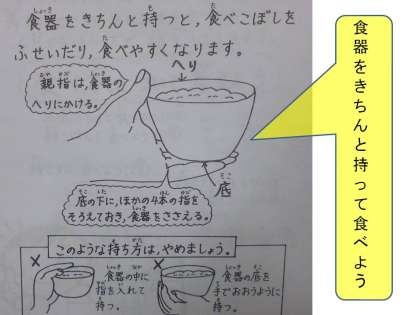 食器をきちんと持つと,食べこぼしを
ふせいだり,食べやすくなります。
へり
親指は,食器の
へりにかける。
底
底の下に,ほかの4本の指を
そろえておき,食器をささえる。
このような持ち方は,やめましょう。
食器の中に
指を入れて
持つ。
食器の底を
手でおおうように
持つ。
食器をきちんと持って食べよう